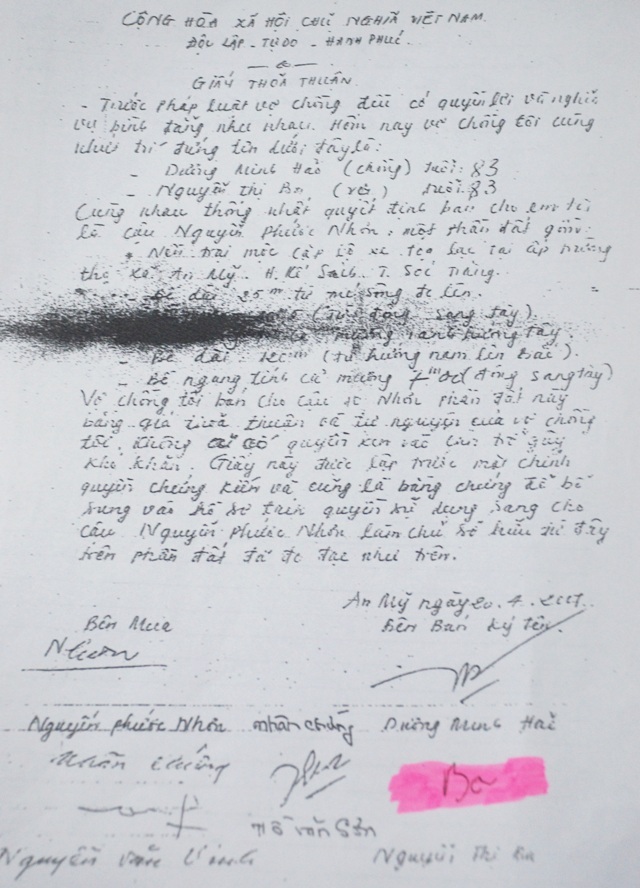 CỘNG HÒA XÃ HỘI CHỦ NGHĨA VIỆT NAM
ĐỘC LẬP - TỰ DO - HẠNH PHÚC
GIẤY THỎA THUẬN
- Trước pháp luật vợ chồng đều có quyền lợi và nghĩa
vụ bình đẳng như nhau. Hôm nay vợ chồng tôi cùng
nhất trí đứng tên dưới đây là:
- Dương Minh Hải (chồng) tuổi: 83
- Nguyễn Thị Ba (vợ) tuổi: 83
Cùng nhau thống nhất quyết định bán cho em tôi
là cậu Nguyễn Phước Nhơn một phần đất gồm:
* Nền trại mộc cặp lộ xe tọa lạc tại ấp trường
thọ xã An Mỹ. H. Kế Sách. T. Sóc Trăng.
- Bề dài 25m từ mé sông đi lên.
(từ đông sang tây).
mương ranh hướng tây.
- Bề dài (từ hướng nam lên bắc).
- Bề ngang tính cả mương 7m đông sang tây)
Vợ chồng tôi bán cho cậu Nhơn phần đất này
bằng giá thỏa thuận và tự nguyện của vợ chồng
tôi, không có quyền xen vào cản trở gây
khó khăn. Giấy này được lập trước mặt chính
quyền chứng kiến và cũng là bằng chứng để bổ
sung vào hồ sơ quyền sử dụng sang cho
cậu Nguyễn Phước Nhơn làm chủ sở hữu từ đây
trên phần đất đã đo đạc như trên.
An Mỹ ngày 20.4.
Bên Mua Bên Bán ký tên.
Nhơn
Nguyễn Phước Nhơn nhân chứng Dương Minh Hải
Nhân chứng
Ba
Văn Sơn
Nguyễn Văn Nguyễn Thị Ba